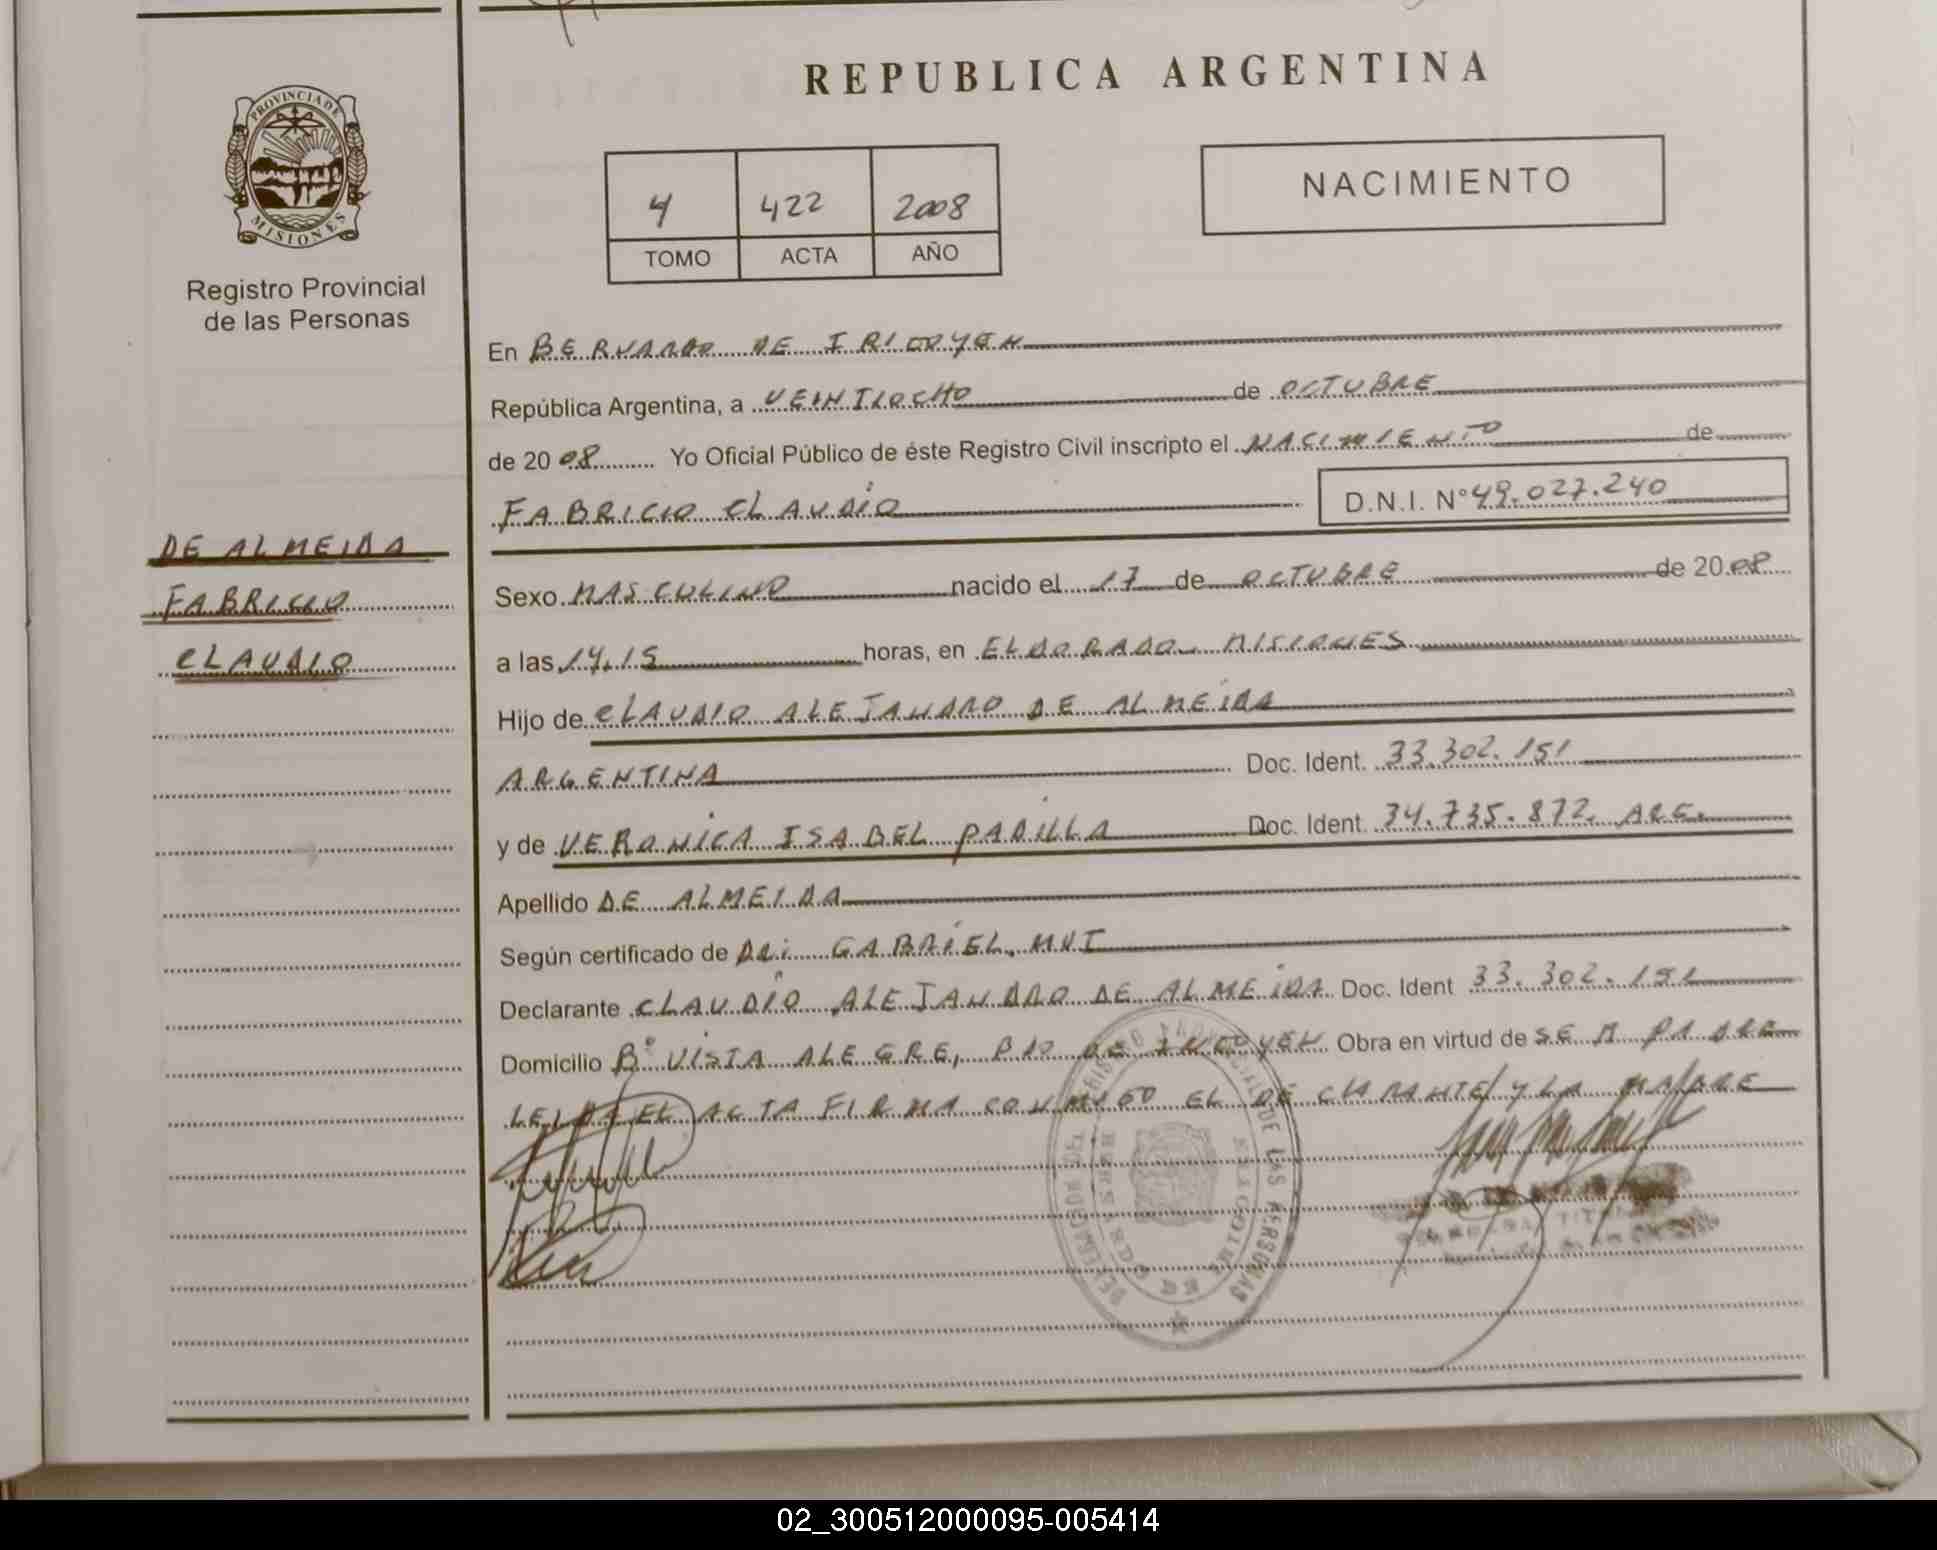 REPUBLICA ARGENTINA
PROVINCIA DE
MISIONES
Registro Provincial
de las Personas
4 422 2008
TOMO ACTA AÑO
NACIMIENTO
DE ALMEIDA
FABRICIO
CLAUDIO
En BERNARDO DE IRIGOYEN
República Argentina, a VEINTIOCHO de OCTUBRE
de 2008 Yo Oficial Público de éste Registro Civil inscripto el NACIMIENTO de
FABRICIO CLAUDIO D.N.I. N° 49.027.240
Sexo MASCULINO nacido el 17 de OCTUBRE de 2008
a las 14.15 horas, en ELDORADO MISIONES
Hijo de CLAUDIO ALEJANDRO DE ALMEIDA
ARGENTINA Doc. Ident. 33.302.151
y de VERONICA ISABEL PADILLA Doc. Ident. 34.735.872. ARG.
Apellido DE ALMEIDA
Según certificado de DR: GABRIEL,
Declarante CLAUDIO ALEJANDRO DE ALMEIDA Doc. Ident 33.302.151
Domicilio B° VISTA ALEGRE, BDO DE IRIGOYEN Obra en virtud de SER PADRE
LEIDA EL ACTA FIRMA CONMIGO EL DECLARANTE Y LA MADRE
DE LAS PERSONAS
02_300512000095-005414